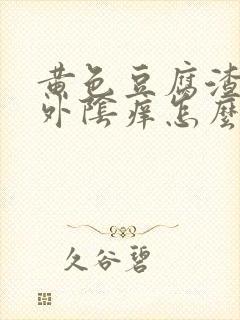 黄色豆腐渣
外陰痒怎麼
久谷碧